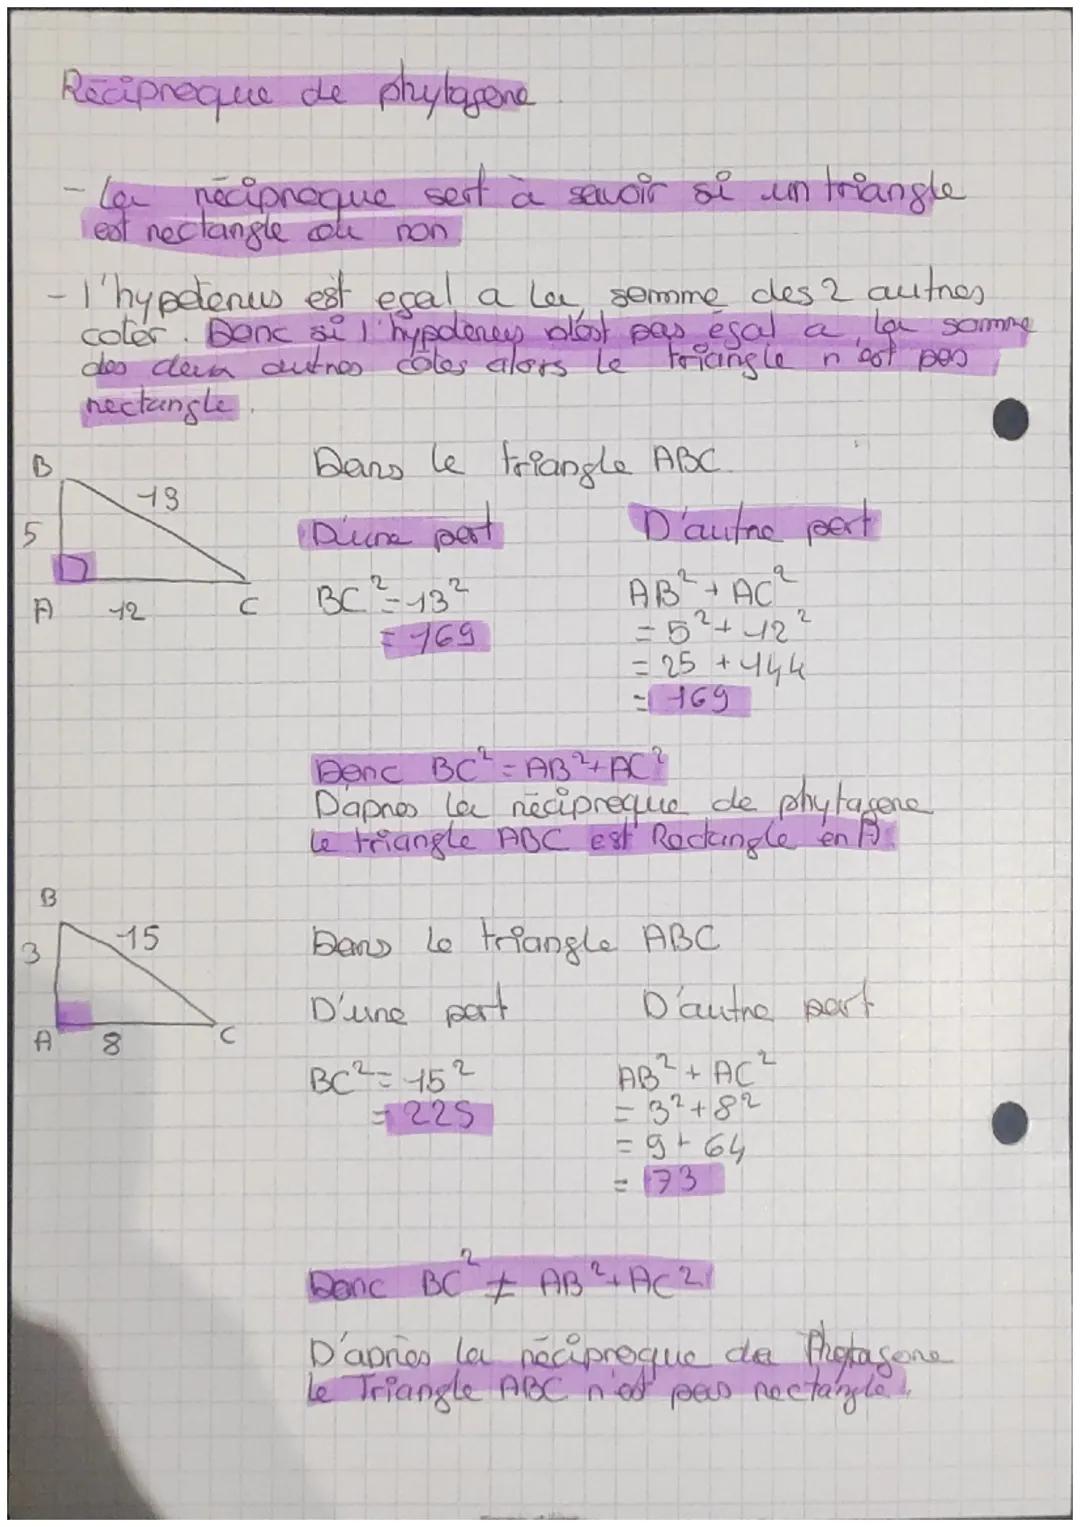 Réciproque de phytagore
- La réciproque sert à savoir si un triangle
est rectangle ou non
- l'hypotenus est egal a la somme des 2 autres
coter. Donc si l'hypotenus n'est pas égal a la somme
des deux autres côtés alors le triangle n'est pas
rectangle.
B
13
5
A 12 C
Dans le triangle ABC.
D'une part D'autre part
BC² = 13² AB² + AC²
= 169 = 5² + 12²
= 25 + 144
= 169
Donc BC² = AB² + AC²
D'apres la réciproque de phytagore
le triangle ABC est Rectangle en A.
B
15
3
A 8 C
Dans le triangle ABC
D'une part D'autre part
BC² = 15² AB² + AC²
= 225 = 3² + 8²
= 9 + 64
= 73
Donc BC² ≠ AB² + AC²
D'après la réciproque de Phytagore
le Triangle ABC n'est pas rectangle.